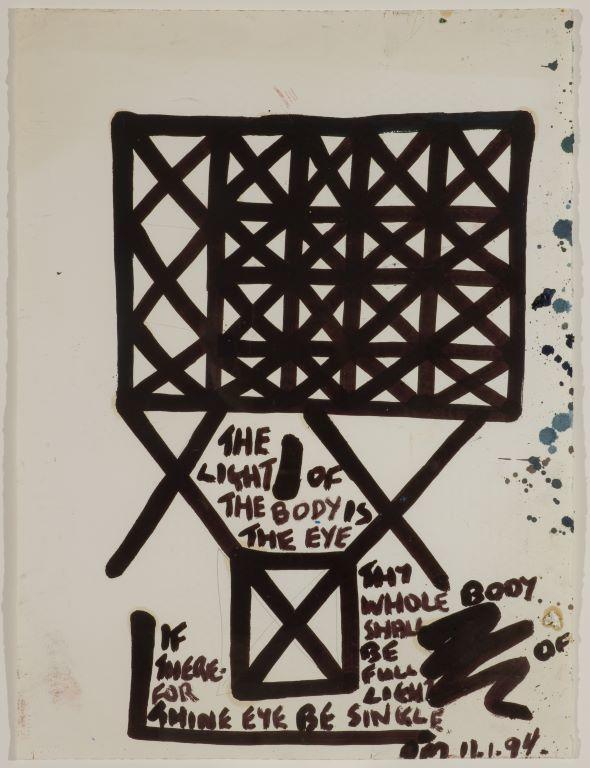 THE
LIGHT OF
THE BODY IS
THE EYE
IF
THERE-
FOR
THINE EYE BE SINGLE
THY
WHOLE BODY
SHALL
BE OF
FULL
LIGHT
11.1.94.